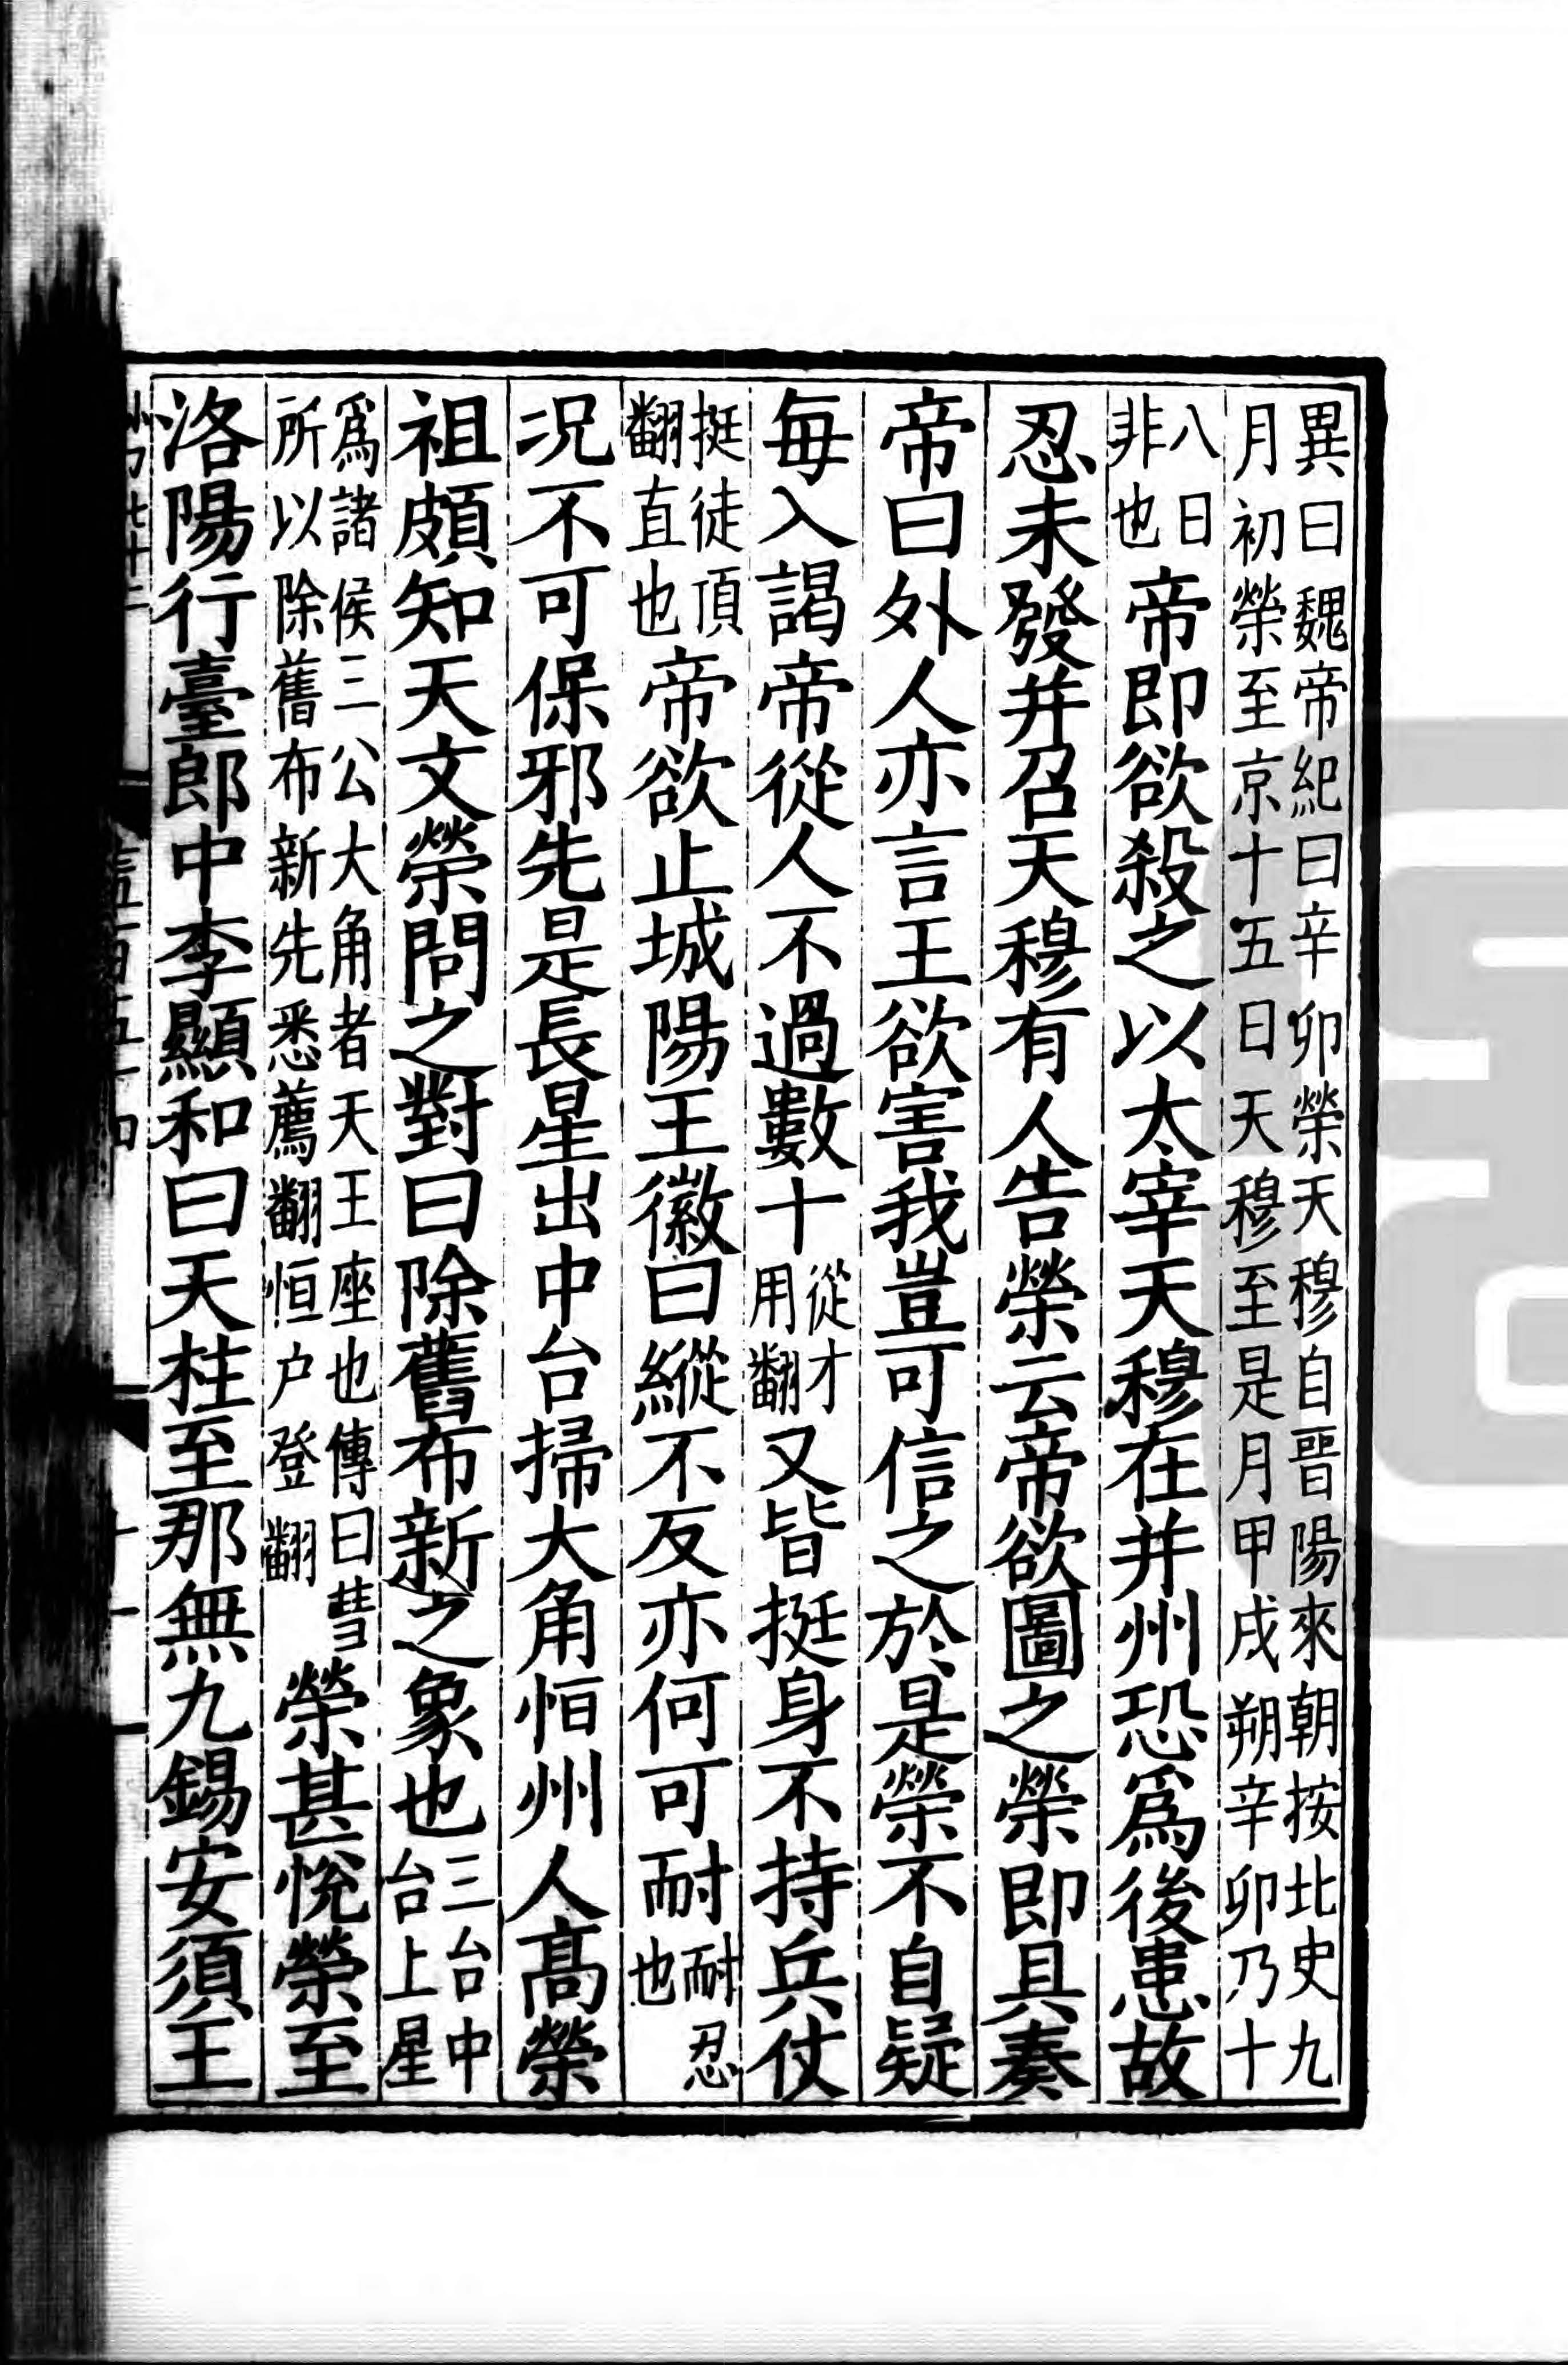 異曰魏帝紀曰辛卯榮天穆自晉陽來朝按北史九
月初榮至京十五日天穆至是月甲戌朔辛卯乃十
八日
非也帝即欲殺之以太宰天穆在并州恐爲後患故
忍未發并召天穆有人告榮云帝欲圖之榮即具奏
帝曰外人亦言王欲害我豈可信之於是榮不自疑
每入謁帝從人不過數十從才用翻又皆挺身不持兵仗
挺徒頂
翻直也帝欲止城陽王徽曰縱不反亦何可耐耐忍也
况不可保邪先是長星出中台掃大角恒州人高榮
祖頗知天文榮問之對曰除舊布新之象也三台中台上星
爲諸侯三公大角者天王座也傳曰彗
所以除舊布新先悉薦翻恒户登翻榮甚悅榮至
洛陽行臺郎中李顯和曰天柱至那無九錫安須王